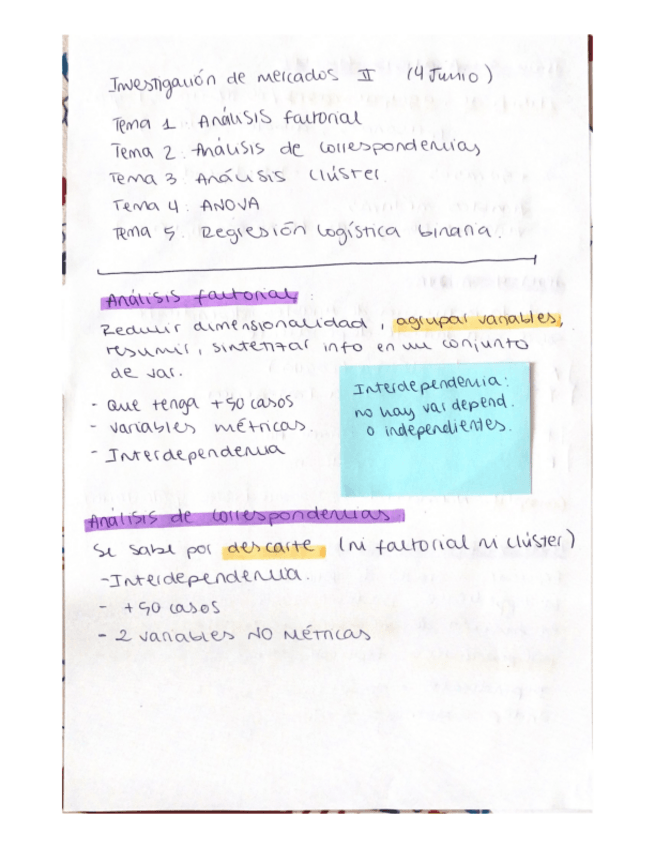 Investigación de mercados II (4 Junio)
Tema 1. Análisis factorial
Tema 2. Análisis de correspondencias
Tema 3. Análisis clúster.
Tema 4: ANOVA
Tema 5. Regresión logística binaria.
Análisis factorial:
Reducir dimensionalidad, agrupar variables,
resumir, sintetizar info en un conjunto
de var.
- Que tenga +50 casos
- variables métricas.
- Interdependencia
Interdependencia:
no hay var depend.
o independientes.
Análisis de correspondencias
Se sabe por descarte (ni factorial ni clúster)
- Interdependencia.
- +50 casos
- 2 variables NO MÉTRICAS